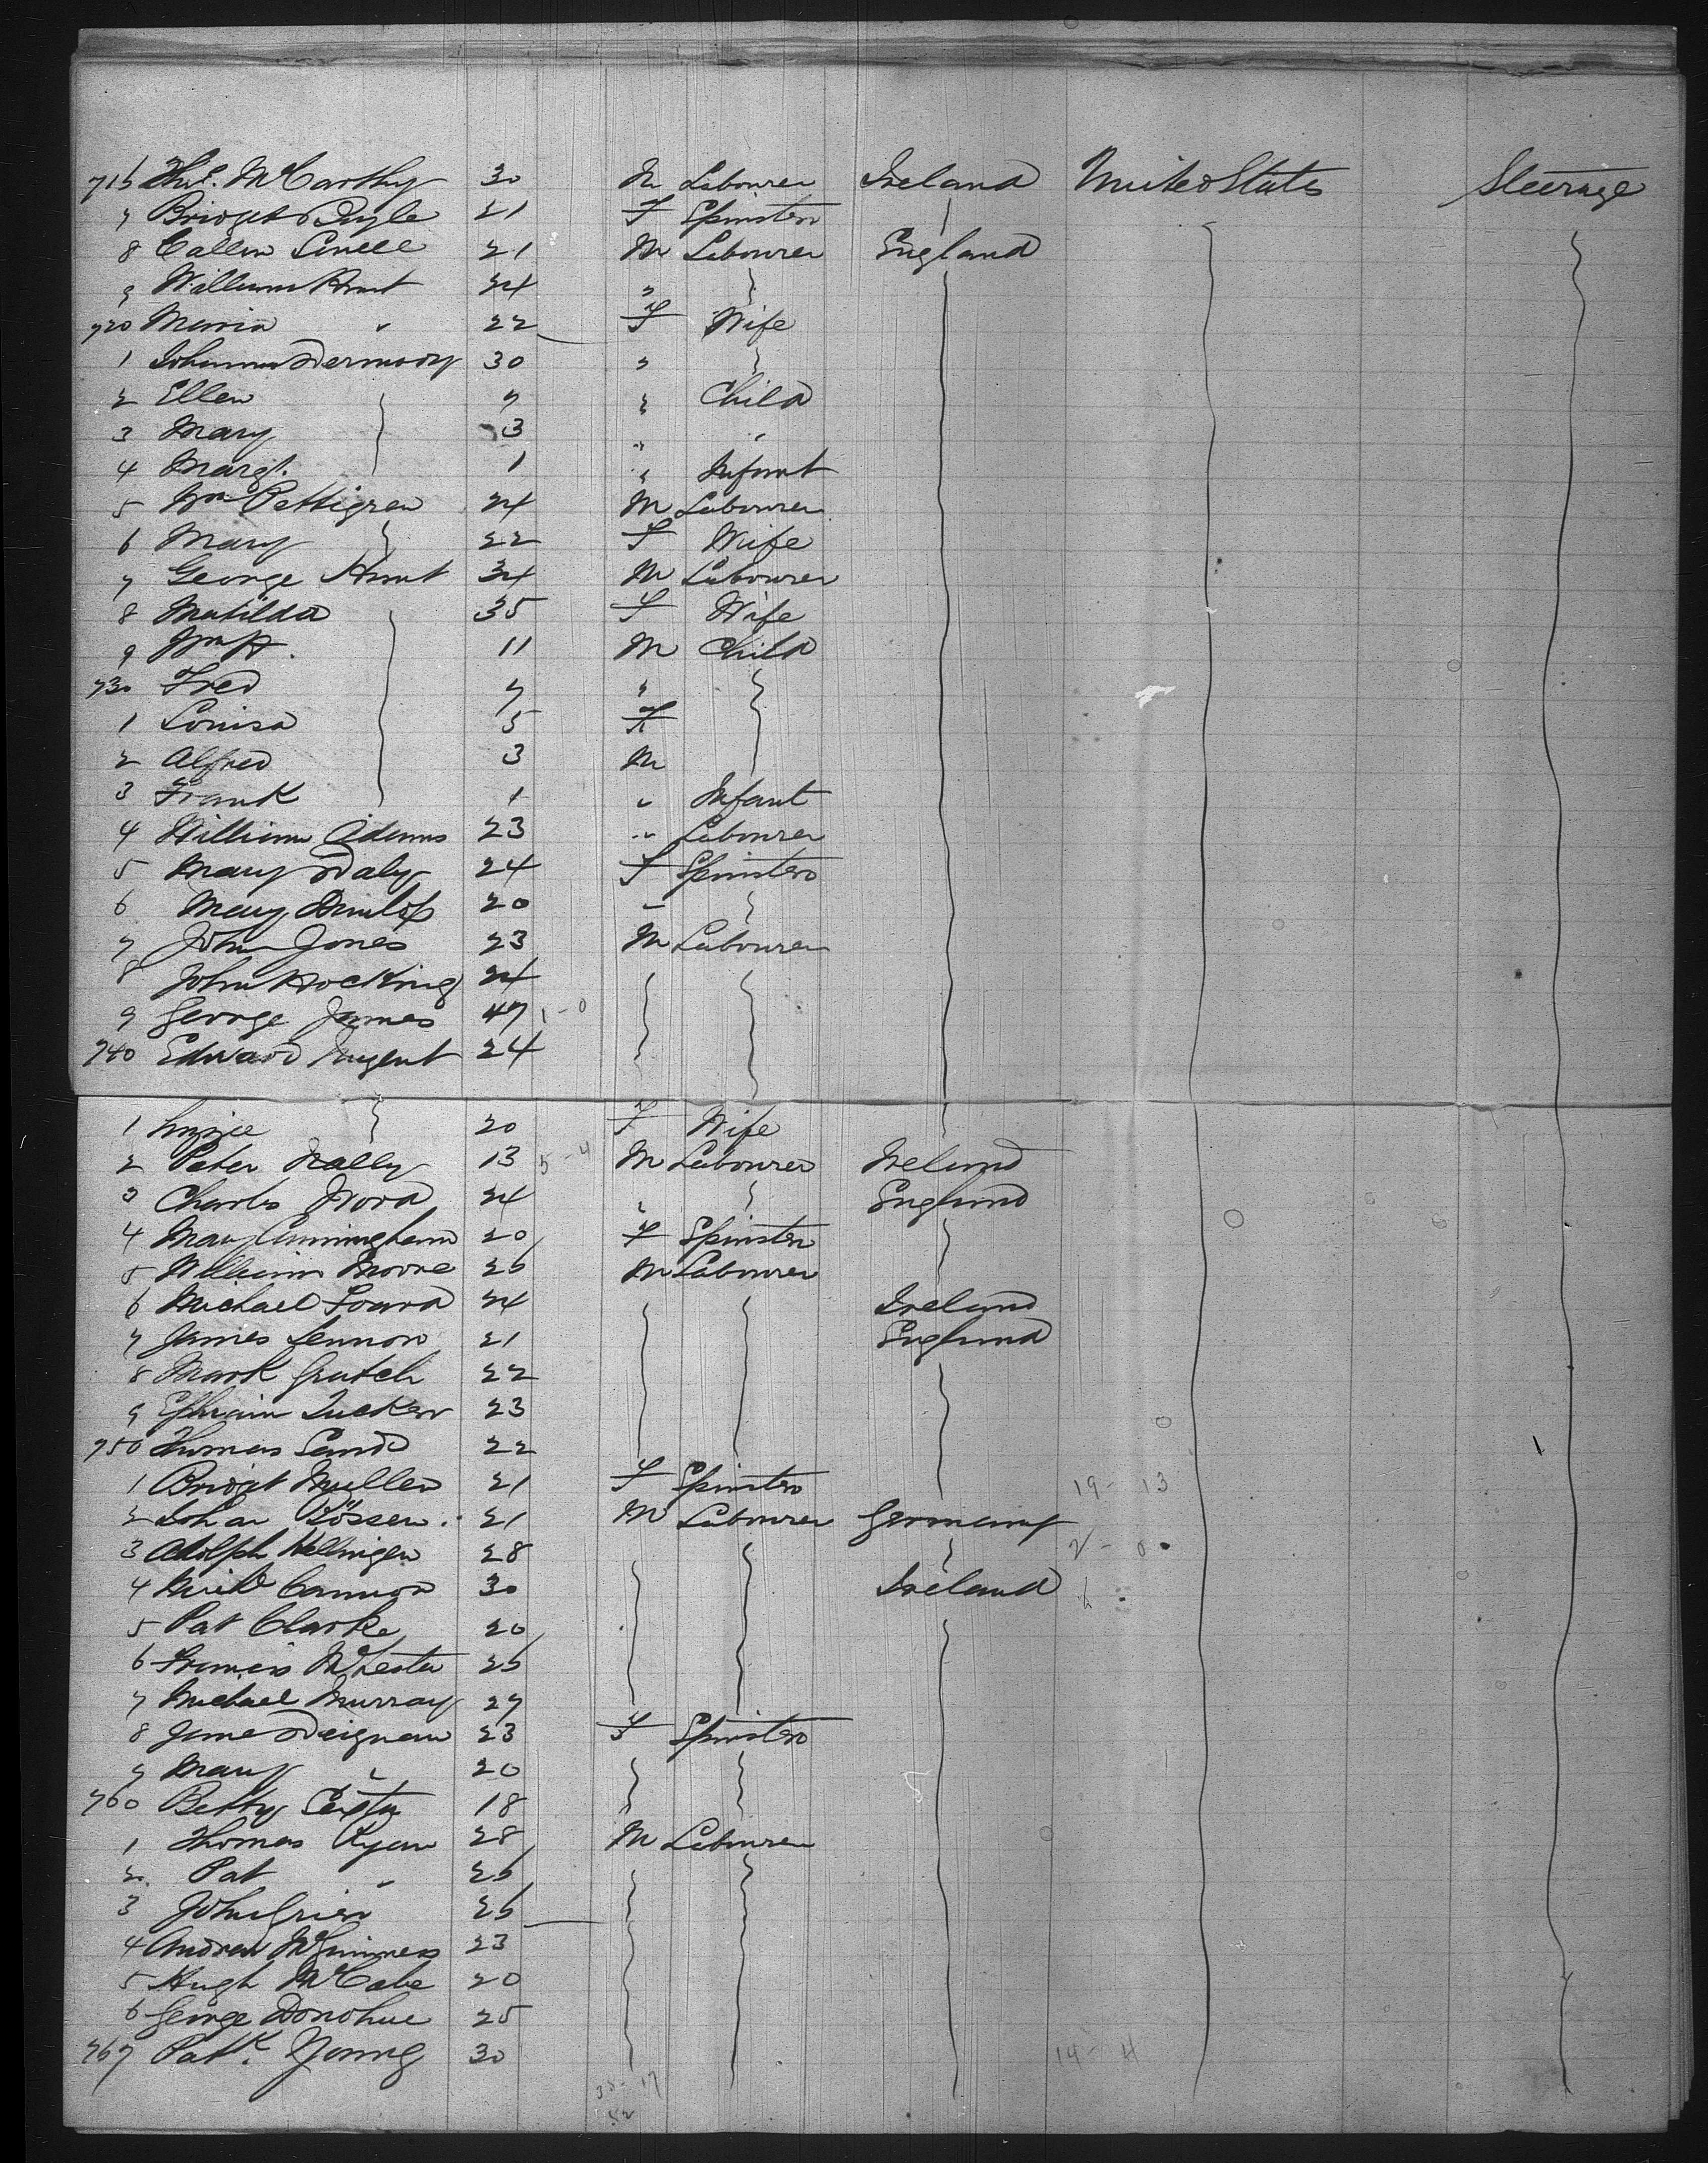 716 Thos. McCarthy 30 M Labourer Ireland United States Steerage
7 Bridget Doyle 21 F Spinster
8 Callin 21 M Labourer England
9 William Hunt 24 "
720 Maria " 22 F Wife
1 Johanna Dermody 30 "
2 Ellen 7 " Child
3 Mary 3 " "
4 Margt. 1 " Infant
5 Wm Pettigrew 24 M Labourer
6 Mary 22 F Wife
7 George Hunt 34 M Labourer
8 Matilda 35 F Wife
9 Wm H. 11 M Child
730 Fred 7 "
1 Louisa 5 F
2 Alfred 3 M
3 Frank 1 " Infant
4 William Adams 23 " Labourer
5 Mary Daly 24 F Spinster
6 Mary Dunlop 20 "
7 John Jones 23 M Labourer
8 John Hocking 24
9 George James 47 1-0
740 Edward Nugent 24
1 Lizzie 20 F Wife
2 Peter Nally 13 5-4 M Labourer Ireland
3 Charles Ward 24 " England
4 Mary Cunningham 20 F Spinster
5 William Moore 26 M Labourer
6 Michael 24 Ireland
7 James Lennon 21 England
8 Mark Grutch 22
9 Ephraim Tucker 23
750 Thomas Sands 22
1 Bridget Mullen 21 F Spinster 19-13
2 Johan Pössen. 21 M Labourer Germany 2-0
3 Adolph Hellingen 28
4 Cannon 30 Ireland
5 Pat Clarke 20
6 Francis 26
7 Michael Murray 27
8 Jane Deignan 23 F Spinster
9 Mary " 20
760 Betty 18
1 Thomas Ryan 28 M Labourer
2 Pat " 26
3 John Grier 26
4 Andrew McGinness 23
5 Hugh McCabe 20
6 George Donohue 25
767 Patk. Young 30 14-4
35-17
52